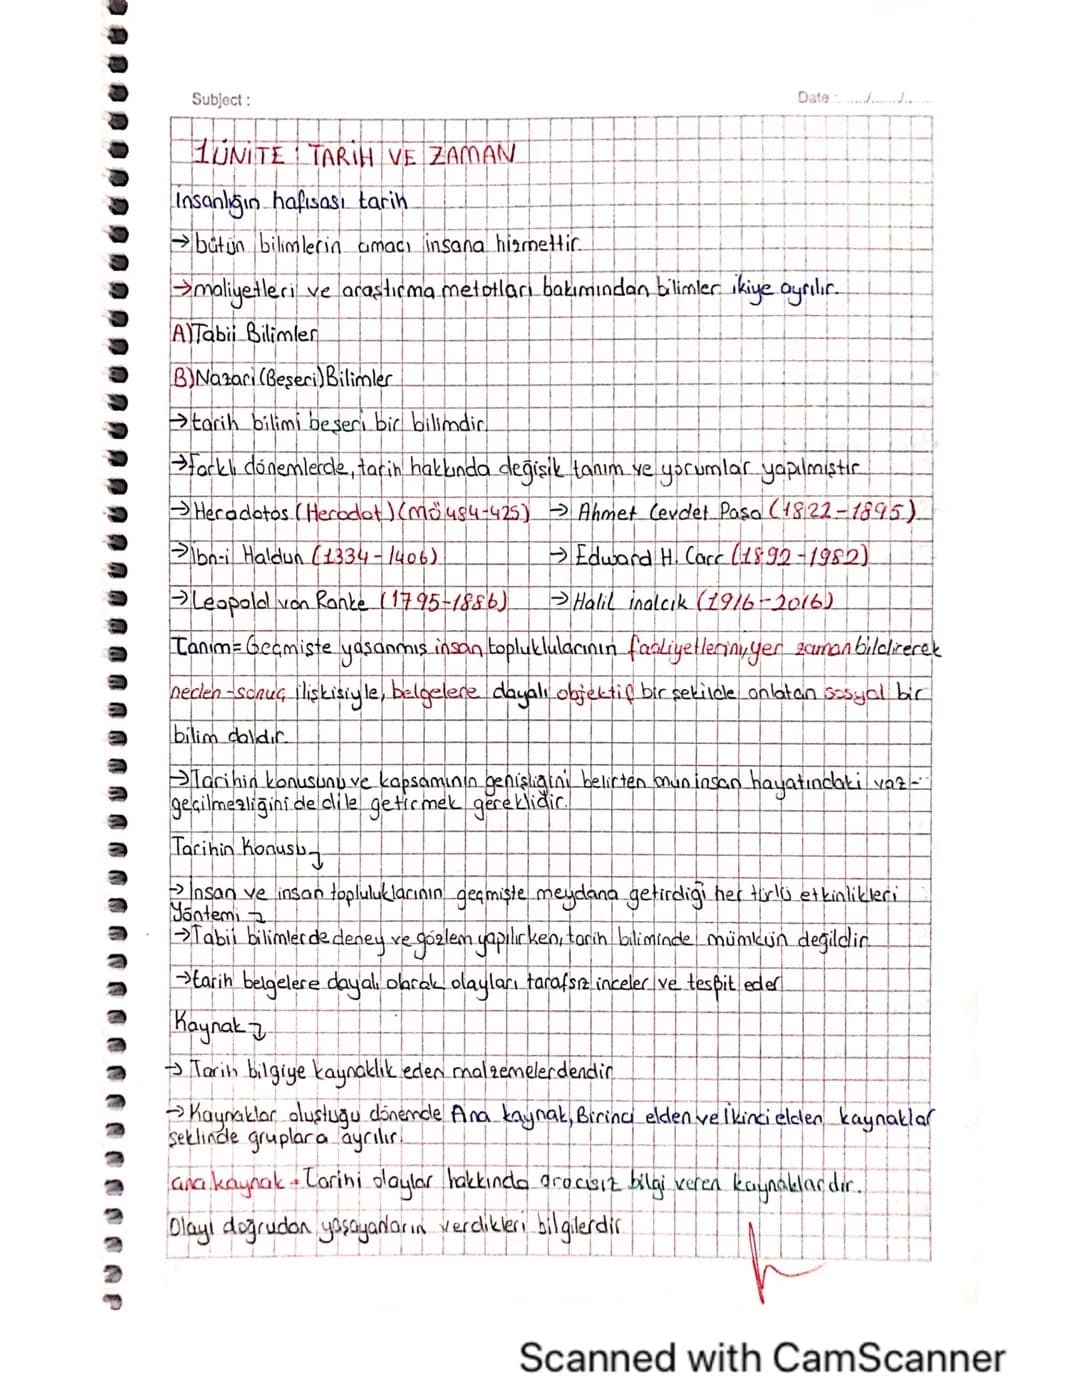 Subject :
Date : ....../....../......
1ÜNİTE : TARİH VE ZAMAN
insanlığın hafısası tarih
→bütün bilimlerin amacı insana hizmettir.
→maliyetleri ve araştırma metotları bakımından bilimler ikiye ayrılır.
A)Tabii Bilimler
B)Nazari(Beşeri)Bilimler
→tarih bilimi beşeri bir bilimdir.
→farklı dönemlerde, tarih hakkında değişik tanım ve yorumlar yapılmıştır
→Herodotos (Herodot)(MÖ 484-425) → Ahmet Cevdet Paşa (1822-1895)
→İbn-i Haldun (1334-1406) → Edward H. Carr (1892-1982)
→Leopold von Ranke (1795-1886) →Halil inalcık (1916-2016)
Tanım= Geçmişte yaşanmış insan topluklularının faaliyetlerini,yer zaman bildirerek
neden-sonuç ilişkisiyle, belgelere dayalı objektif bir şekilde anlatan sosyal bir
bilim daldır.
→Tarihin konusunu ve kapsamının genişliğini belirten onun insan hayatındaki vaz-
geçilmezliğini de dile getirmek gereklidir.
Tarihin Konusu
→İnsan ve insan topluluklarının geçmişte meydana getirdiği her türlü etkinlikleri
Yöntemi
→Tabii bilimlerde deney ve gözlem yapılırken, tarih biliminde mümkün değildir.
→tarih belgelere dayalı olarak olayları tarafsız inceler ve tespit eder
Kaynak
→ Tarih bilgiye kaynaklık eden malzemelerdendir
→Kaynaklar oluştuğu dönemde Ana kaynak, Birinci elden ve İkinci elden kaynaklar
şeklinde gruplara ayrılır.
ana kaynak = Tarihi olaylar hakkında aracısız bilgi veren kaynaklardır.
Olayı doğrudan yaşayanların verdikleri bilgilerdir
Scanned with CamScanner